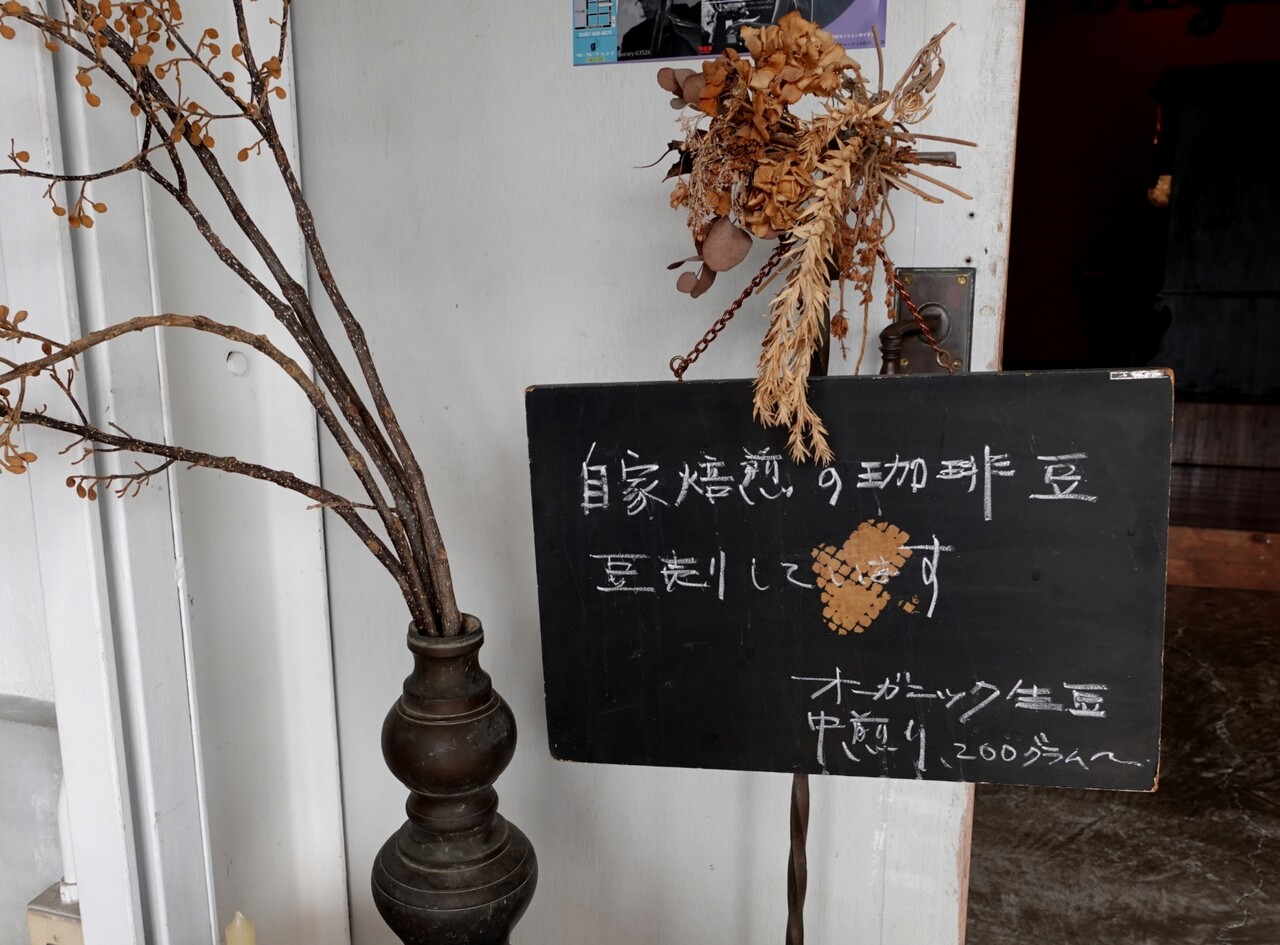 自家焙煎の珈琲豆
豆売りしています
オーガニック生豆
中煎り、200グラム〜